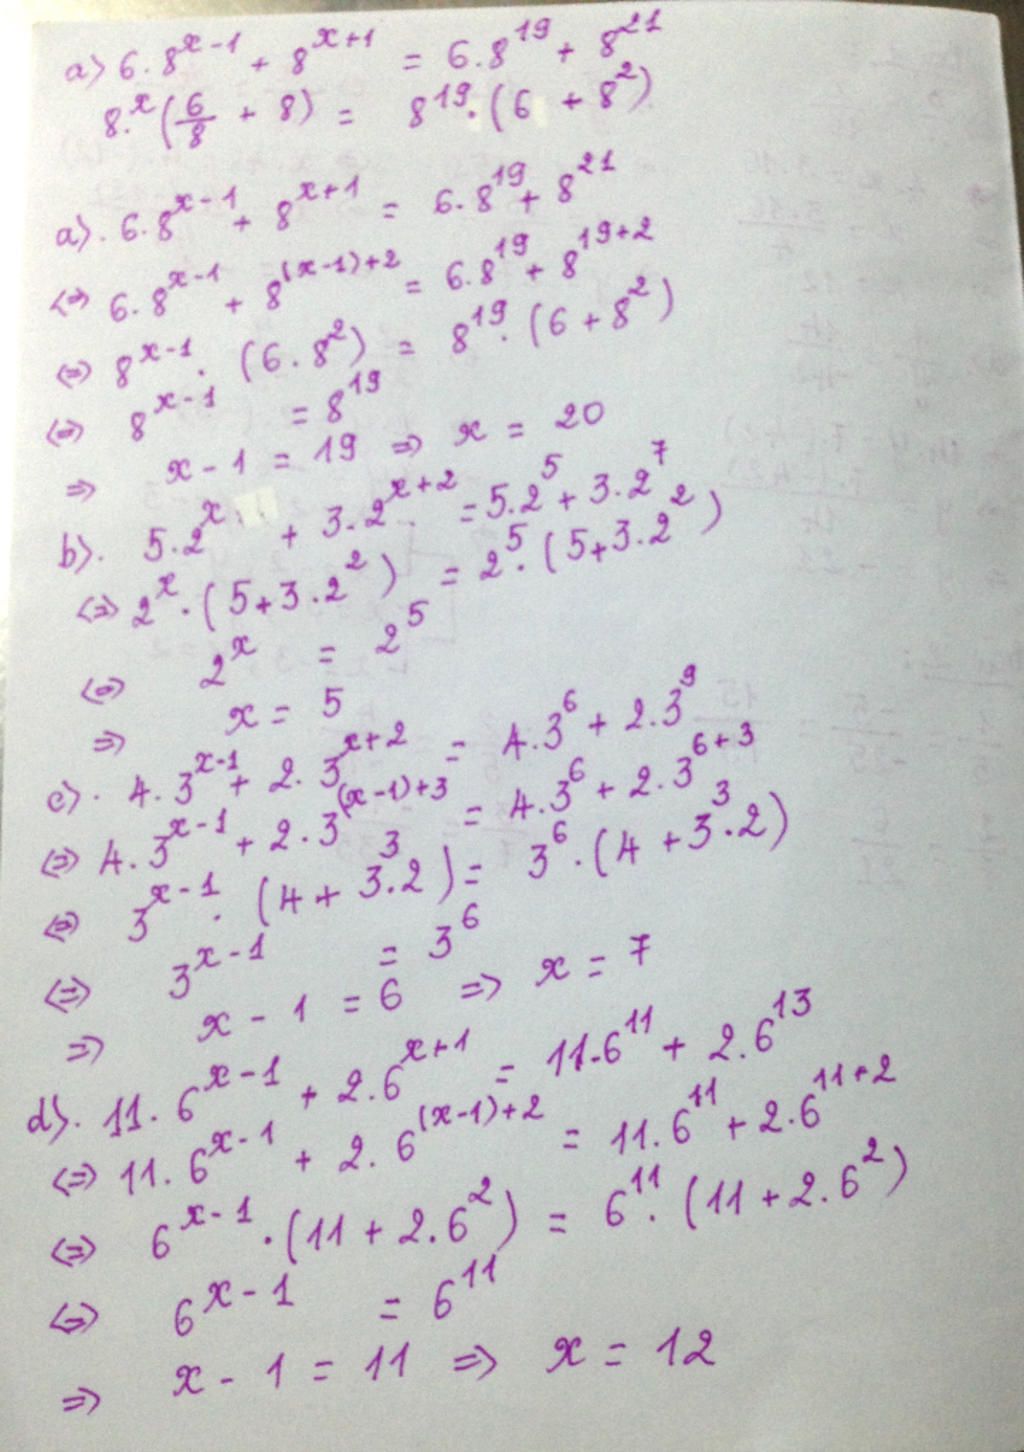 a) 6.8^{x-1} + 8^{x+1} = 6.8^{19} + 8^{21}
8.^{x}(\frac{6}{8} + 8) = 8^{19}.(6 + 8^{2})
a). 6.8^{x-1} + 8^{x+1} = 6.8^{19} + 8^{21}
<=> 6.8^{x-1} + 8^{(x-1)+2} = 6.8^{19} + 8^{19+2}
<=> 8^{x-1}. (6.8^{2}) = 8^{19}.(6 + 8^{2})
<=> 8^{x-1} = 8^{19}
=> x - 1 = 19 => x = 20
b). 5.2^{x} + 3.2^{x+2} = 5.2^{5} + 3.2^{7}
<=> 2^{x}.(5+3.2^{2}) = 2^{5}.(5+3.2^{2})
<=> 2^{x} = 2^{5}
=> x = 5
c). 4.3^{x-1} + 2.3^{x+2} = 4.3^{6} + 2.3^{9}
<=> 4.3^{x-1} + 2.3^{(x-1)+3} = 4.3^{6} + 2.3^{6+3}
<=> 3^{x-1}. (4 + 3^{3}.2) = 3^{6}.(4 + 3^{3}.2)
<=> 3^{x-1} = 3^{6}
=> x - 1 = 6 => x = 7
d). 11.6^{x-1} + 2.6^{x+1} = 11.6^{11} + 2.6^{13}
<=> 11.6^{x-1} + 2.6^{(x-1)+2} = 11.6^{11} + 2.6^{11+2}
<=> 6^{x-1}.(11 + 2.6^{2}) = 6^{11}.(11 + 2.6^{2})
<=> 6^{x-1} = 6^{11}
=> x - 1 = 11 => x = 12